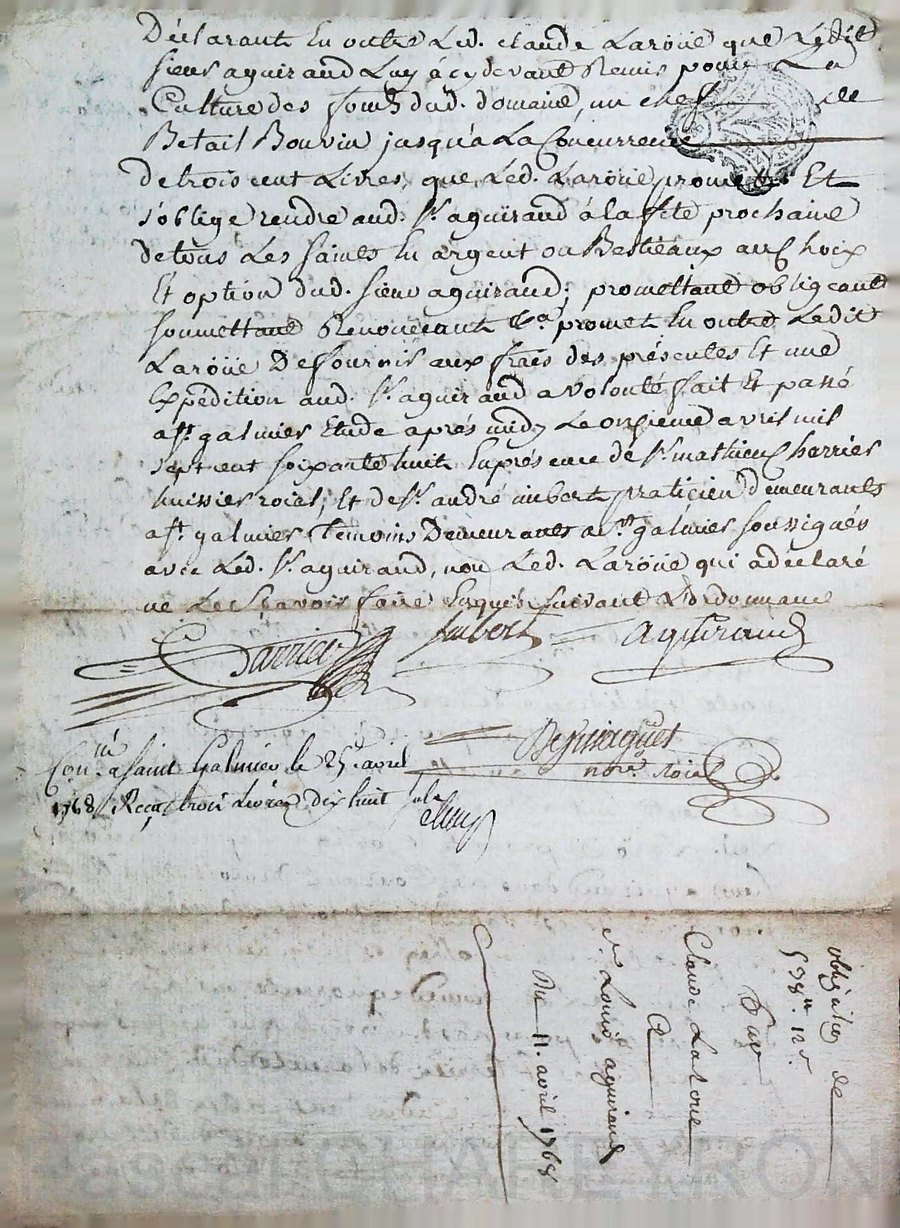 Déclarant En outre Led. claude Laroüe que Ledit
sieur aguiraud Luy a cydevant Remis pour La
Culture des fonds dud. domaine, un chef de
Betail Bouvin jusqu'a La Concurrence
de trois cent Livres, que Led. Laroüe promet Et
s'oblige rendre aud. sr. aguiraud á la fête prochaine
de tous Les saints En argent ou Bestieaux au Choix
Et option dud. sieur aguiraud; promettant obligeant
soumettant Renonceant &a. promet En outre Ledit
Laroüe De fournir aux frais des présentes Et une
Expédition aud. sr. aguiraud a volonté fait Et passé
a st. galmier Etude aprés midy Le onsieme avril mil
sept cent soixante huit En présence de sr. mathieu Charrier
huissier roial, Et de sr. andré imbert praticien Demeurants
a st. galmier témoins Demeurants a st. galmier soussignés
avec Led. sr. aguiraud, non Led. Laroüe qui a déclaré
ne Le sçavoir faire Enquis suivant L'ordonnance
Charrier imbert aguiraud
notre. roial
Conlé a saint Galmier le 25 avril
1768 Reçu trois Livres dix huit sols
obligation de
538lt. 12s.
Par
Claude Laroue
A
sr. Louis aguiraud
Du 11. avril 1768
CHAREYRON